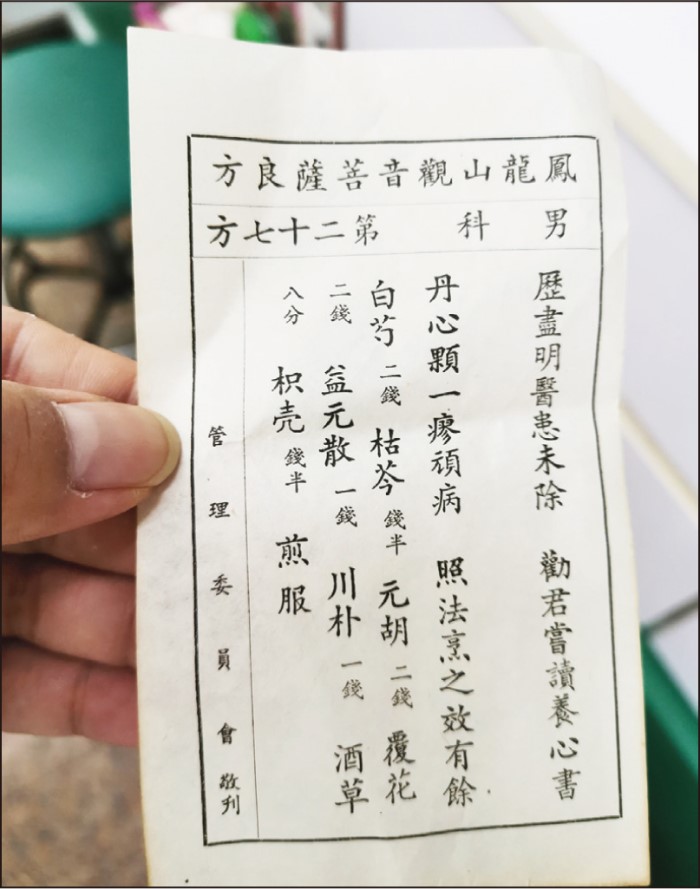 鳳龍山觀音菩薩良方
男科　第二十七方
歷盡明醫患未除　勸君嘗讀養心書
丹心顆一瘳頑病　照法烹之效有餘
白芍二錢　枯芩錢半　元胡二錢　覆花
二錢　益元散一錢　川朴一錢　酒草
八分　枳壳錢半　煎服
管理委員會敬刋